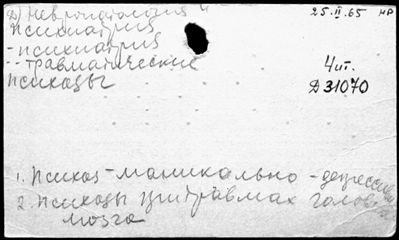 Д) Невропатология и
психиатрия
25.II.65 нр
- психиатрия
-- травматические
психозы
4 чит.
Д31070
1. Психоз - маникально - депрессивный
2. Психозы при травмах голов.
мозга